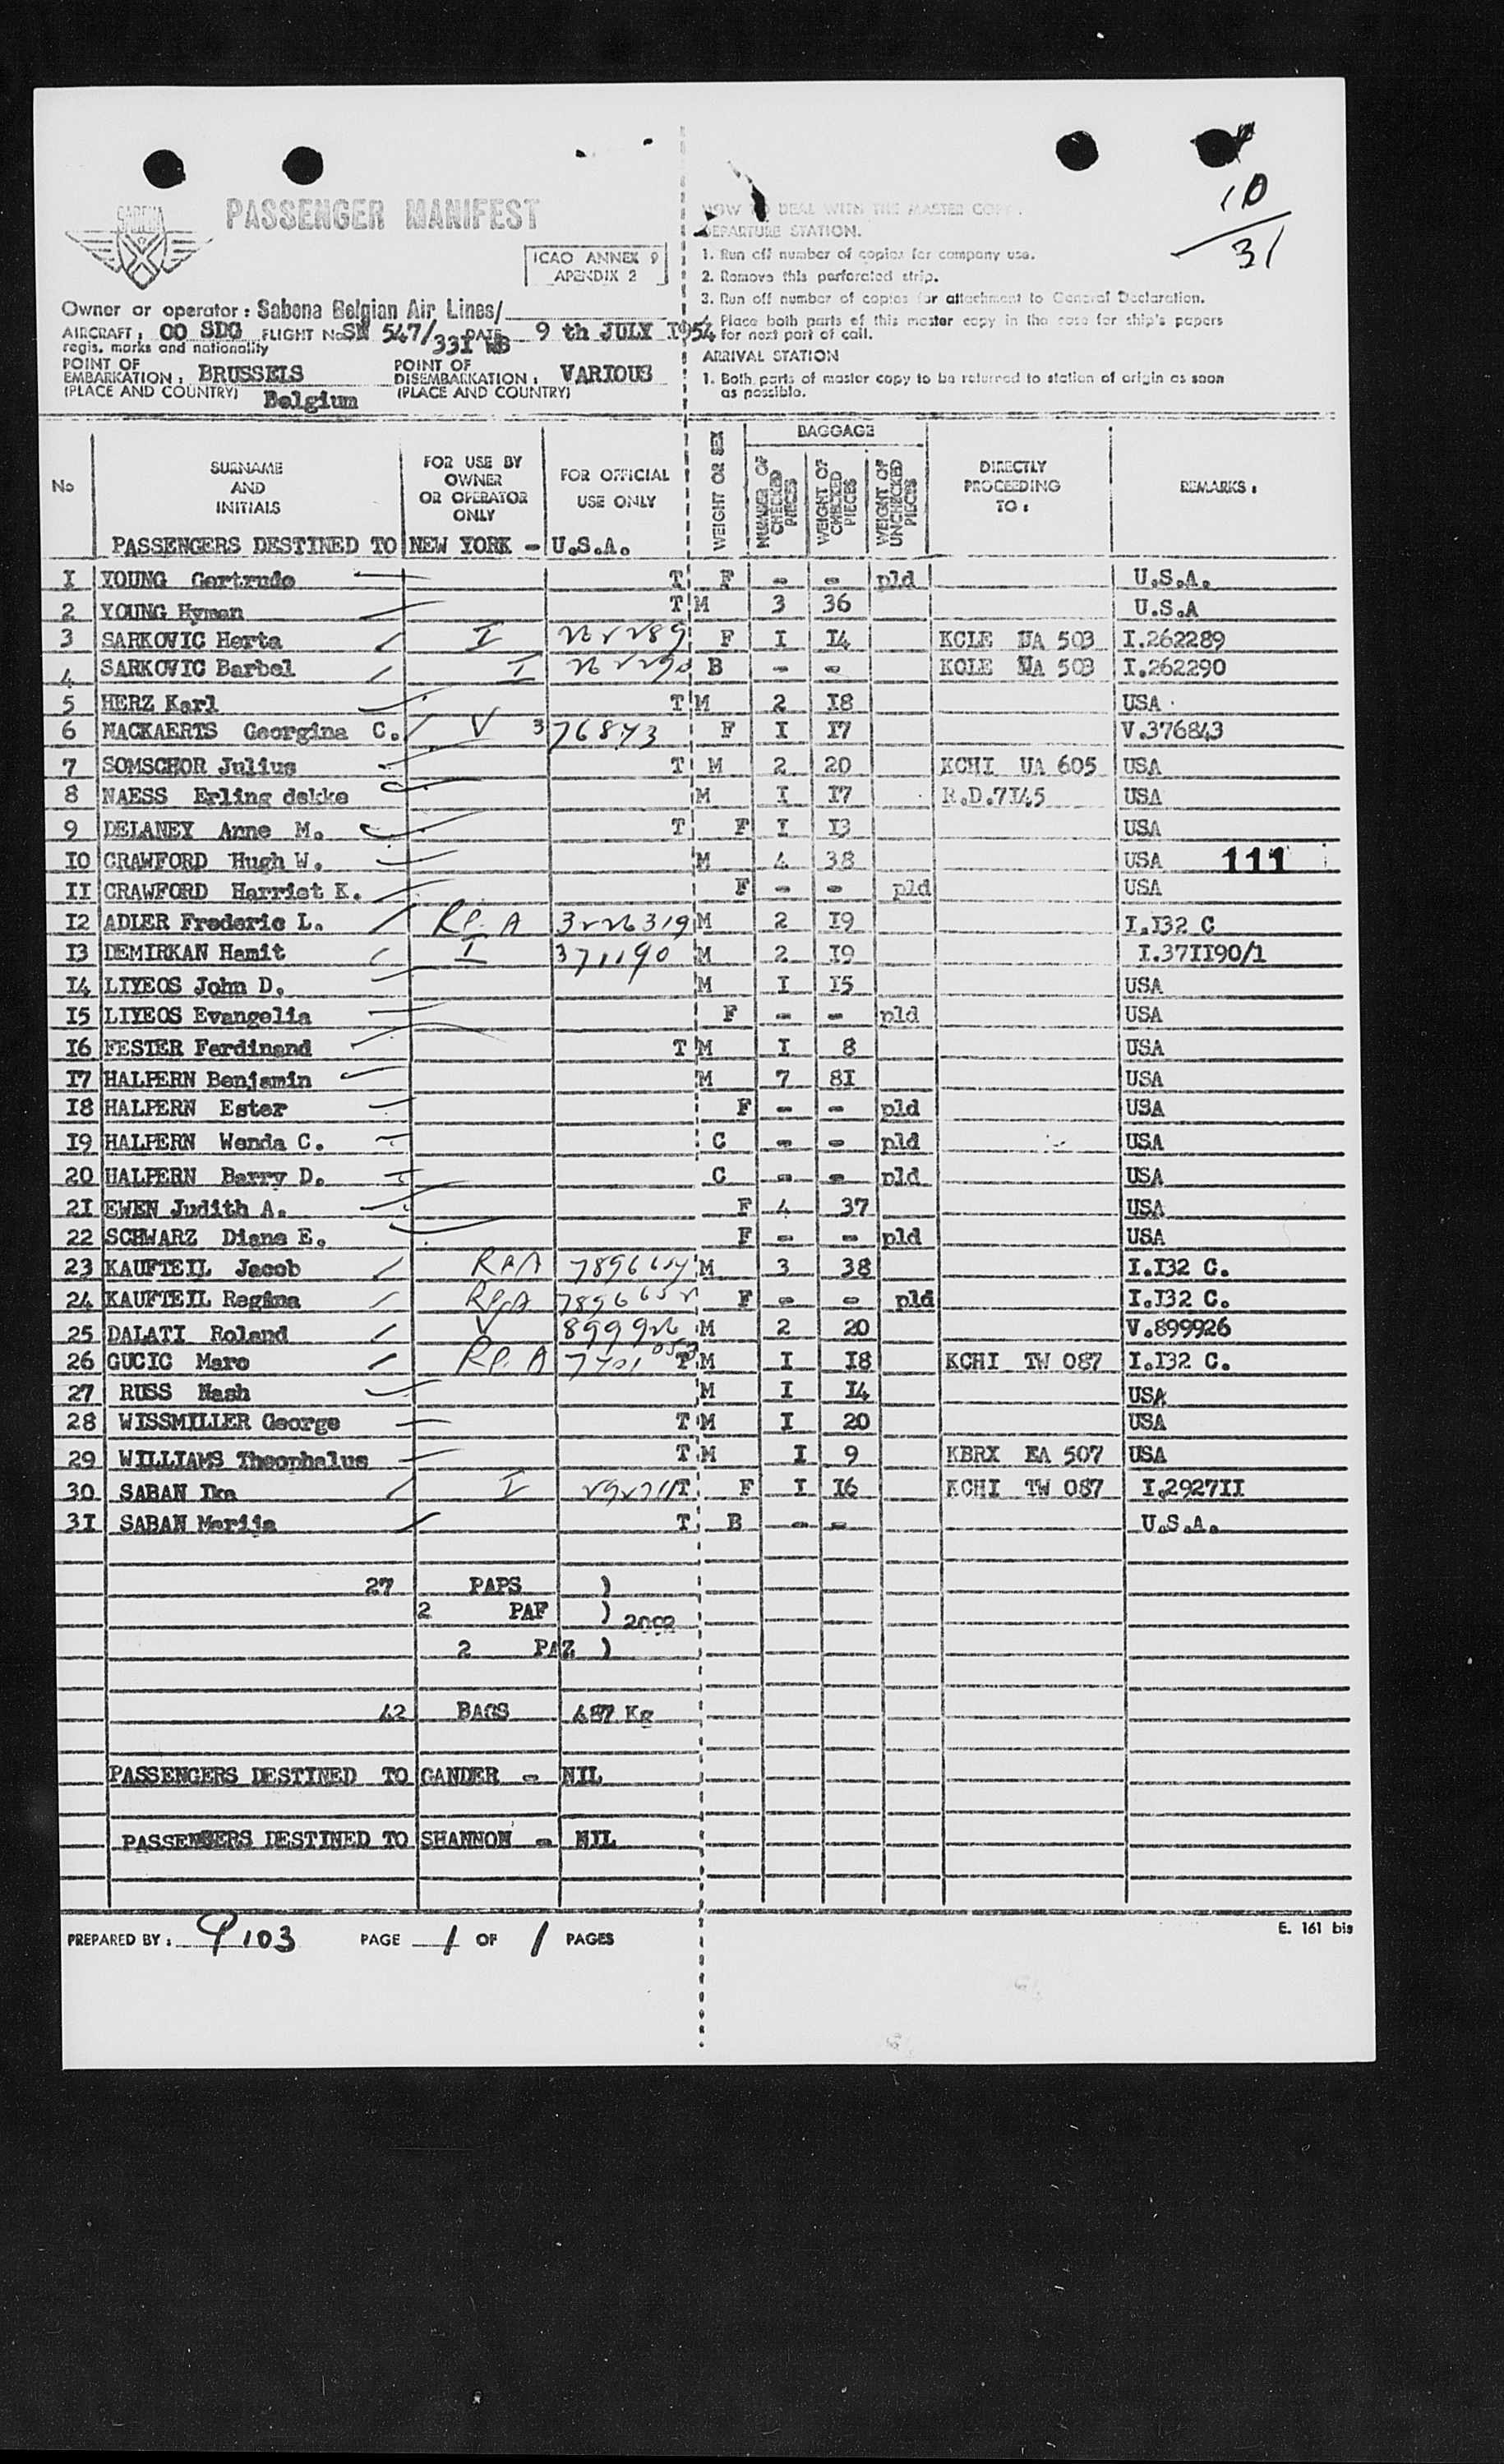 10
31
SABENA
PASSENGER MANIFEST
ICAO ANNEX 9
APENDIX 2
Owner or operator : Sabena Belgian Air Lines/
AIRCRAFT : OO SDG FLIGHT No SN 547/331 DATE 9 th JULY I954
regis. marks and nationality
POINT OF EMBARKATION : BRUSSELS POINT OF DISEMBARKATION : VARIOUS
(PLACE AND COUNTRY) Belgium (PLACE AND COUNTRY)
HOW TO DEAL WITH THE MASTER COPY.
DEPARTURE STATION.
1. Run off number of copies for company use.
2. Remove this perforated strip.
3. Run off number of copies for attachment to General Declaration.
4. Place both parts of this master copy in the case for ship's papers
for next part of call.
ARRIVAL STATION
1. Both parts of master copy to be returned to station of origin as soon
as possible.
No
SURNAME AND INITIALS
FOR USE BY OWNER OR OPERATOR ONLY
FOR OFFICIAL USE ONLY
WEIGHT OR SEX
BAGGAGE
NUMBER OF CHECKED PIECES
WEIGHT OF CHECKED PIECES
WEIGHT OF UNCHECKED PIECES
DIRECTLY PROCEEDING TO :
REMARKS :
PASSENGERS DESTINED TO NEW YORK - U.S.A.
I YOUNG Gertrude T F - - pld U.S.A.
2 YOUNG Hyman T M 3 36 U.S.A
3 SARKOVIC Herta I 262289 F I I4 KCLE UA 503 I.262289
4 SARKOVIC Barbel I 262290 B - - KCLE UA 503 I.262290
5 HERZ Karl T M 2 I8 USA
6 NACKAERTS Georgina C. V 376843 F I I7 V.376843
7 SOMSCHOR Julius T M 2 20 KCHI UA 605 USA
8 NAESS Erling dekke M I I7 R.D.7I45 USA
9 DELANEY Anne M. T F I I3 USA
I0 CRAWFORD Hugh W. M 4 38 USA 111
II CRAWFORD Harriet K. F - - pld USA
I2 ADLER Frederic L. RP.A 3226319 M 2 I9 I.I32 C
I3 DEMIRKAN Hamit I 371190 M 2 I9 I.37II90/1
I4 LIYEOS John D. M I I5 USA
I5 LIYEOS Evangelia F - - pld USA
I6 FESTER Ferdinand T M I 8 USA
I7 HALPERN Benjamin M 7 8I USA
I8 HALPERN Ester F - - pld USA
I9 HALPERN Wenda C. C - - pld USA
20 HALPERN Barry D. C - - pld USA
2I EWEN Judith A. F 4 37 USA
22 SCHWARZ Diane E. F - - pld USA
23 KAUFTEIL Jacob RPA 7896654 M 3 38 I.I32 C.
24 KAUFTEIL Regina RPA 7896652 F - - pld I.I32 C.
25 DALATI Roland V 899926 M 2 20 V.899926
26 GUCIC Maro RP.A T M I I8 KCHI TW 087 I.I32 C.
27 RUSS Nash M I I4 USA
28 WISSMILLER George T M I 20 USA
29 WILLIAMS Theophalus T M I 9 KBRX EA 507 USA
30 SABAN Ika I 292711 T F I I6 KCHI TW 087 I.2927II
3I SABAN Marija T B - - U.S.A.
27 PAPS )
2 PAF ) 2092
2 PAZ )
42 BAGS 487 Kg
PASSENGERS DESTINED TO GANDER - NIL
PASSENGERS DESTINED TO SHANNON - NIL
PREPARED BY : P103 PAGE 1 OF 1 PAGES
E. 161 bis